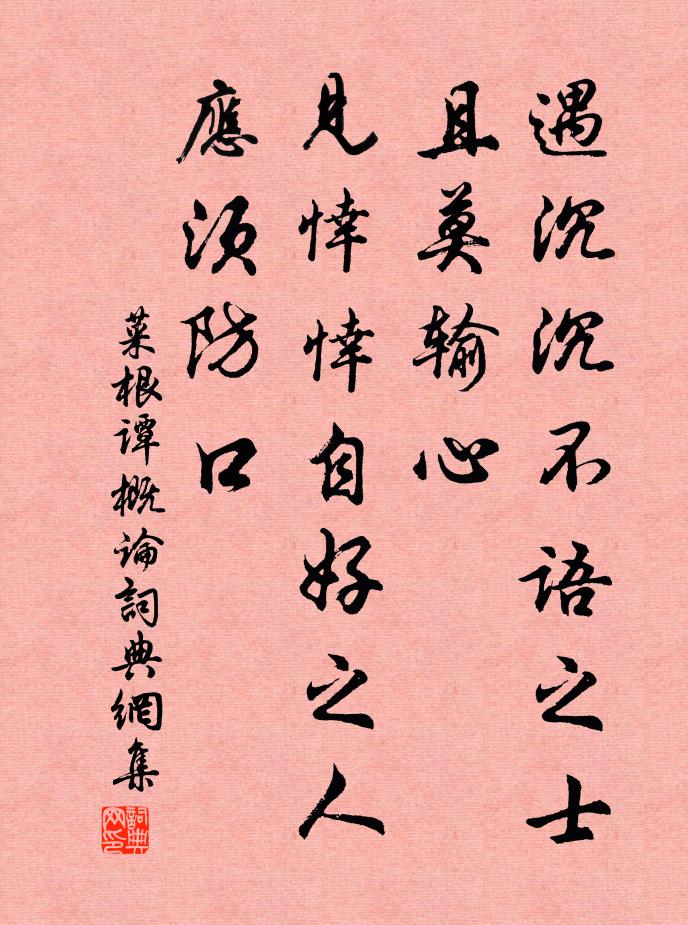 遇沉沉不語之士
且莫输心
見悻悻自好之人
應須防口
菜根谭概论詞典網集
詞典网印